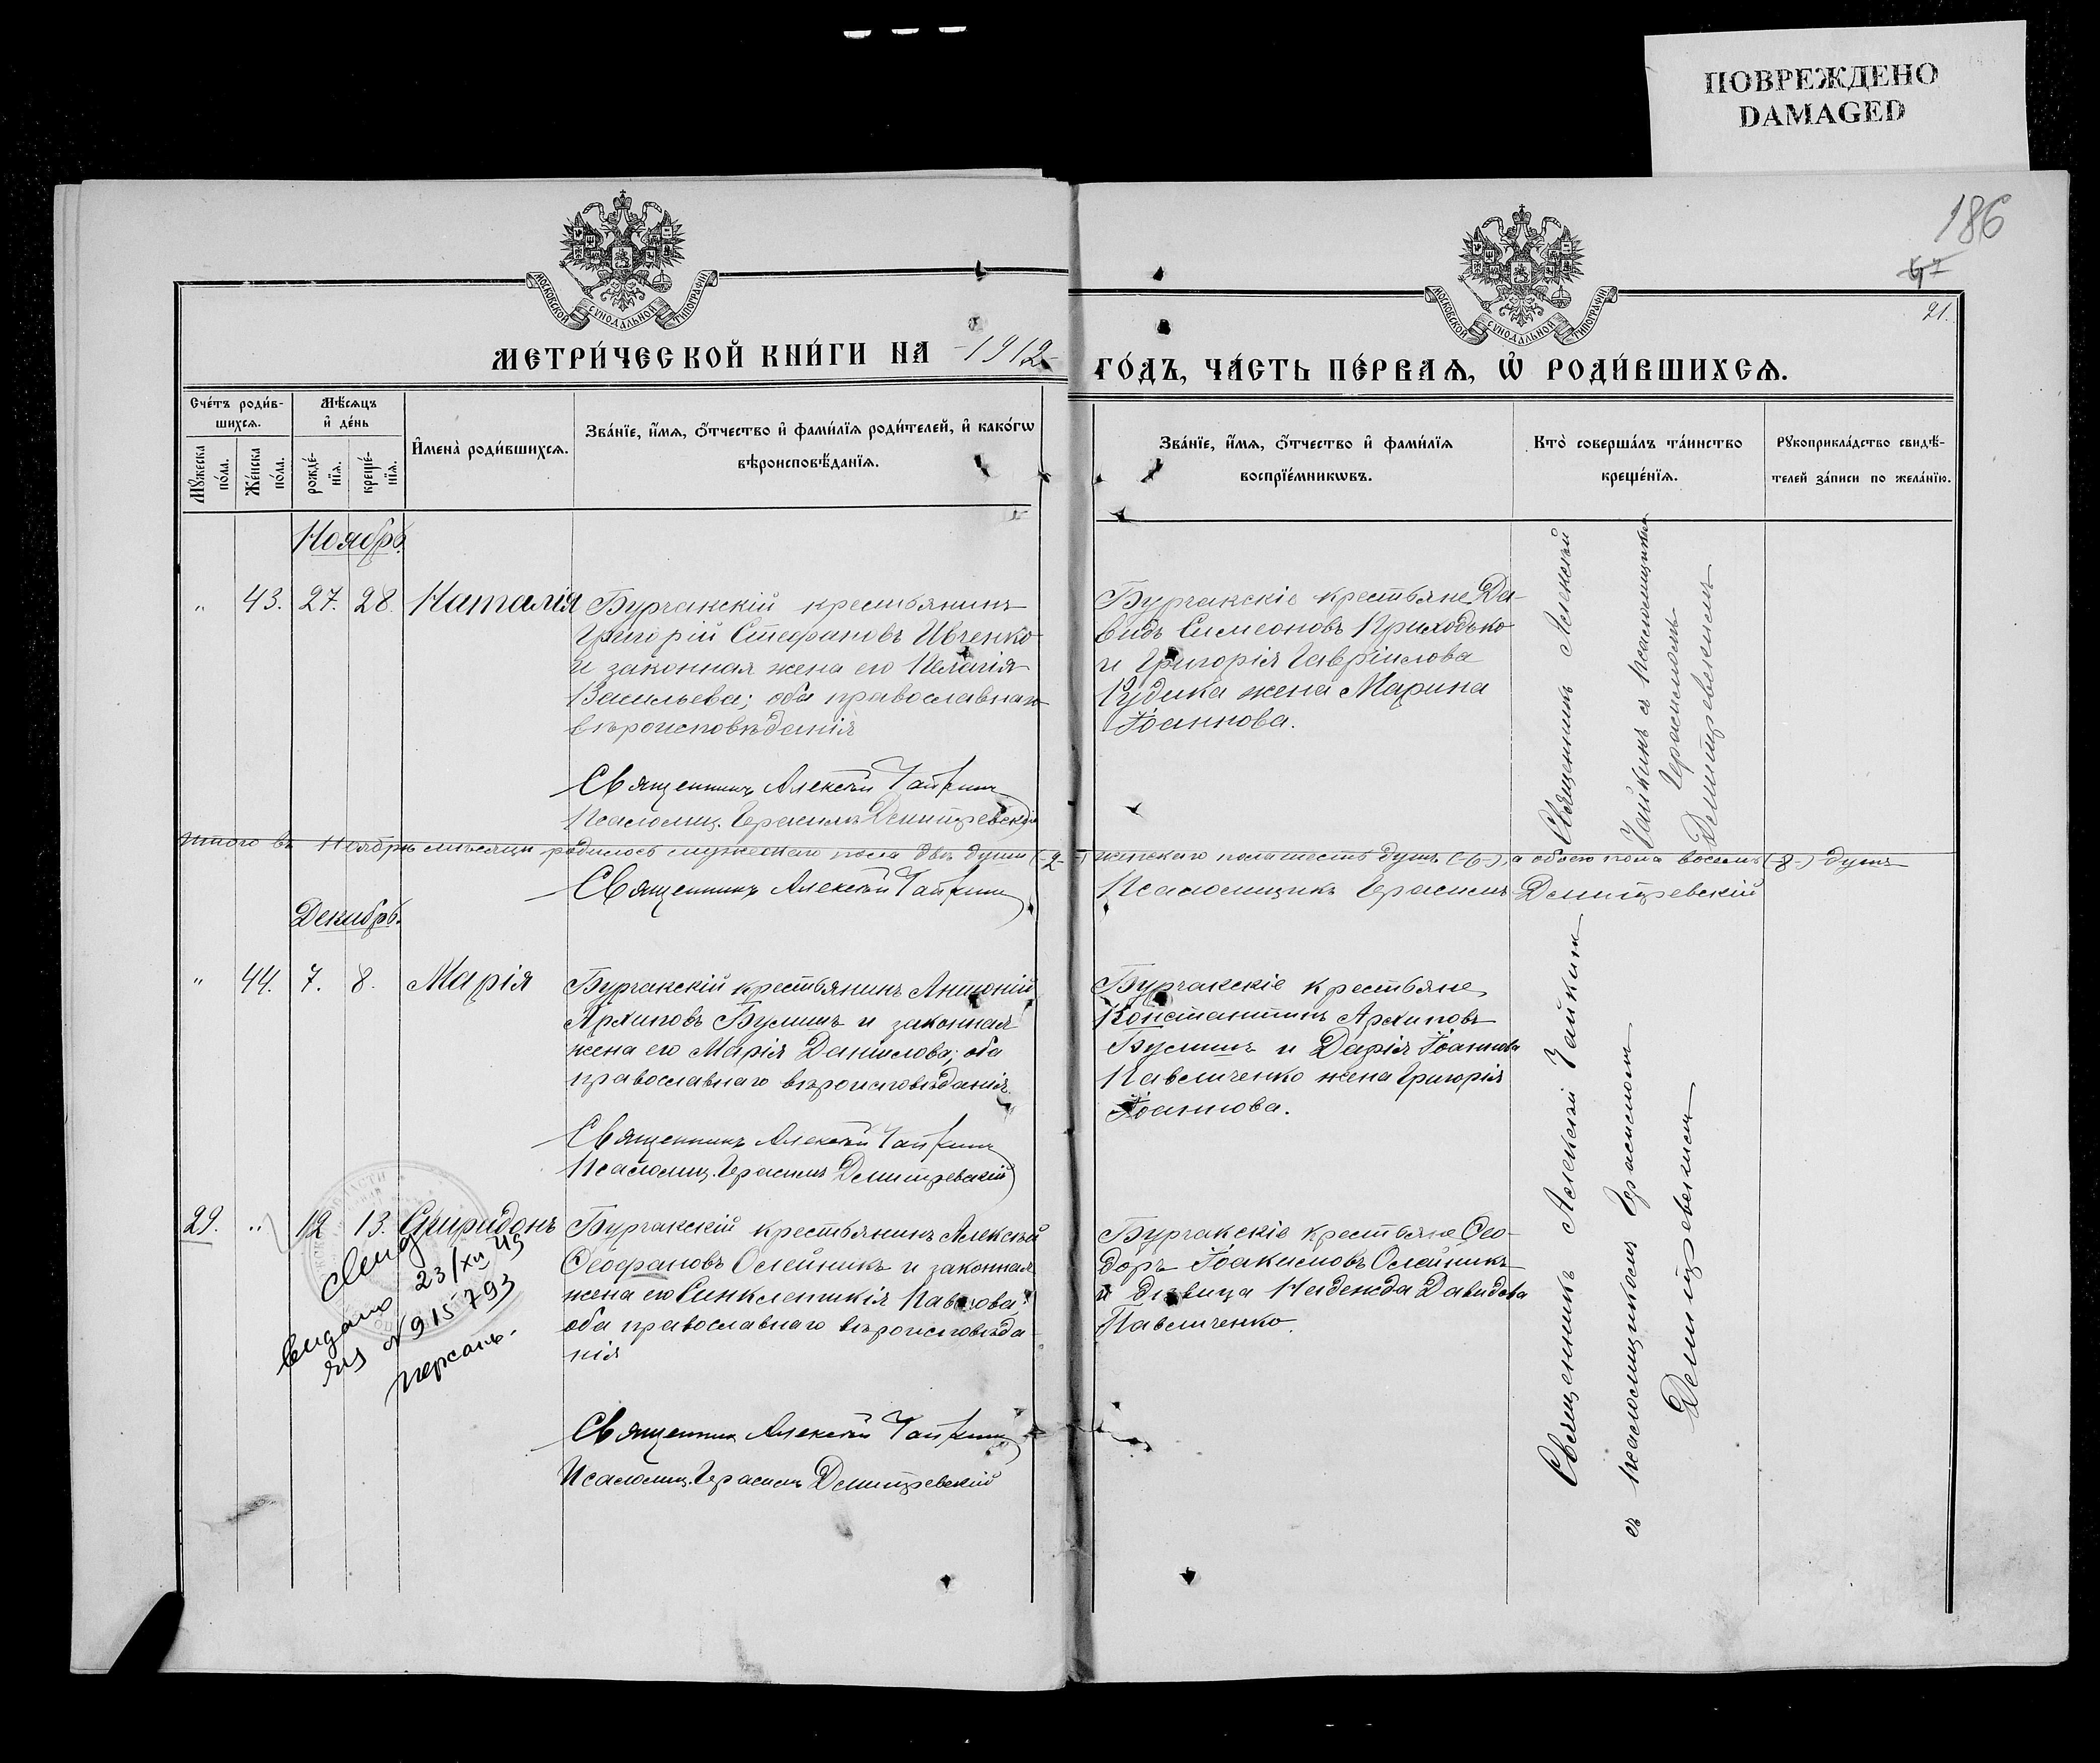 ПОВРЕЖДЕНО
DAMAGED
186
67
21.
МОСКОВСКОЙ СУНОДАЛЬНОЙ ТИПОГРАФІИ
МОСКОВСКОЙ СУНОДАЛЬНОЙ ТИПОГРАФІИ
МЕТРИ́ЧЕСКОЙ КНИ́ГИ НА 1912
ГО́ДЪ, ЧА́СТЬ ПЕ́РВАѦ, Ѡ҆ РОДИ́ВШИХСѦ.
Сче́тъ роди́в-
шихсѧ.
Мꙋжеска
по́ла.
Же́нска
по́ла.
Мѣ́сѧцъ
и҆ де́нь
рожде́-
нїѧ.
креще́-
нїѧ.
И҆мена̀ роди́вшихсѧ.
Зва́нїе, и҆́мѧ, ѻ҆́тчество и҆ фами́лїѧ роди́телей, и҆ како́гѡ
вѣроисповѣ́данїѧ.
Зва́нїе, и҆́мѧ, ѻ҆́тчество и҆ фами́лїѧ
воспрїе́мникѡвъ.
Кто̀ соверша́лъ та́инство
креще́нїѧ.
Рꙋкоприкла́дство свидѣ́-
телей за́писи по жела́нїю.
Ноябрь.
" 43. 27. 28. Наталія
Бурчакскій крестьянинъ
Григорій Стефановъ Ивченко
и законная жена его Пелагія
Васильева; оба православнаго
вѣроисповѣданія
Священникъ Алексѣй Чайкинъ
Псаломщ. Герасимъ Демитревскій
Бурчакскіе крестьяне Да-
видъ Симеоновъ Приходько
и Григорія Гавріилова
Рудика жена Марина
Іоаннова.
Священникъ Алексѣй
Чайкинъ съ псаломщикомъ
Герасимомъ
Демитревскимъ
Итого въ Ноябрѣ мѣсяцѣ родилось мужескаго пола двѣ души (-2-) женскаго пола шесть душъ (-6-), а обоего пола восемь (-8-) душъ
Священникъ Алексѣй Чайкинъ
Псаломщикъ Герасимъ Демитревскій
Декабрь.
" 44. 7. 8. Марія
Бурчакскій крестьянинъ Антоній
Архиповъ Булишъ и законная
жена его Марія Данилова; оба
православнаго вѣроисповѣданія.
Священникъ Алексѣй Чайкинъ
Псаломщ. Герасимъ Демитревскій
Бурчакскіе крестьяне,
Константинъ Архиповъ
Булишъ и Дарія Іоаннова
Павличенко жена Григорія
Іоаннова.
29. " 12 13. Спиридонъ
Бурчакскій крестьянинъ Алексѣй
Ѳеофановъ Олейникъ и законная
жена его Синклетикія Павлова;
оба православнаго вѣроисповѣда-
нія
Священникъ Алексѣй Чайкинъ
Псаломщ. Герасимъ Демитревскій
Бурчакскіе крестьяне Ѳео-
доръ Іоакимовъ Олейникъ
и дѣвица Надежда Давидова
Павличенко.
Священникъ Алексѣй Чайкинъ
съ псаломщикомъ Герасимомъ
Демитревскимъ
видано 23/XII 49
яц № 915793